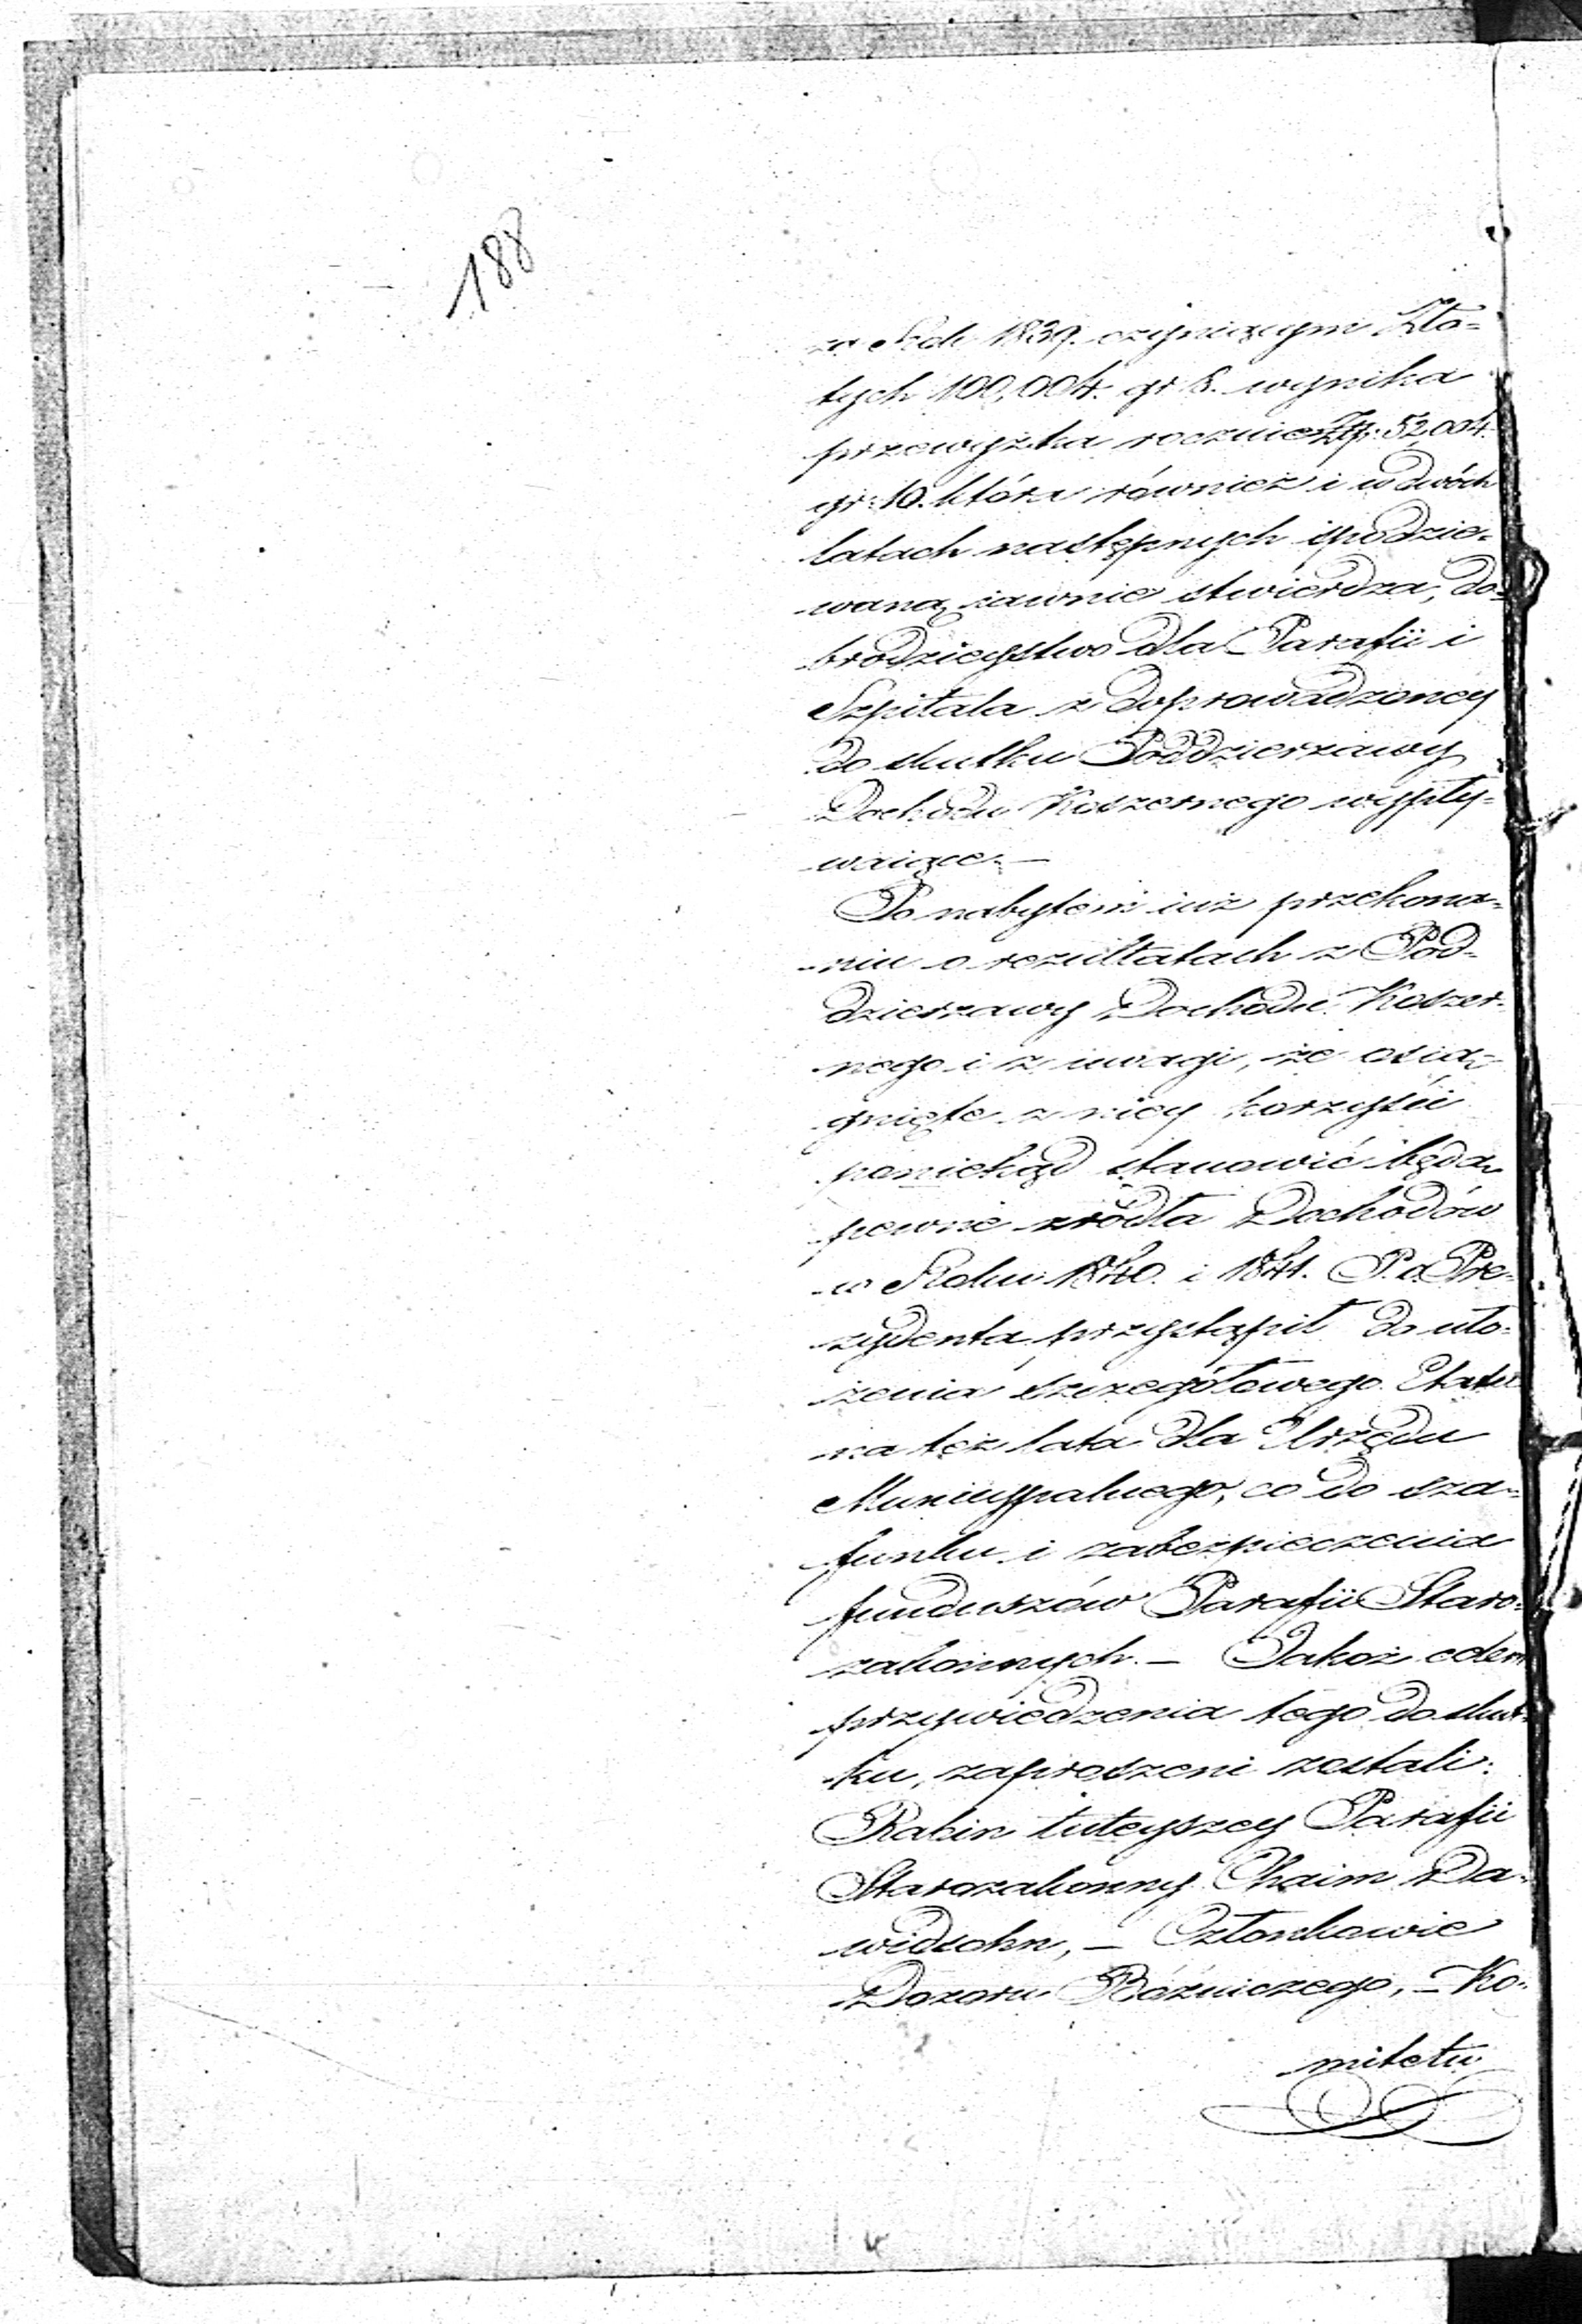 188
za Rok 1839. czyniącym Zło=
tych 100,004. gr 8. wynika
przewyżka rocznie Złp: 52,004.
gr: 10. która również i w dwóch
latach następnych spodzie=
waną iawnie stwierdza, do=
brodzieystwo dla Parafii i
Szpitala z doprowadzoney
do skutku Poddzierzawy
Dochodu Koszernego wypły=
waiące. —
Po nabytem iuż przekona=
niu o rezultatach z Pod=
dzierzawy Dochodu Koszer=
nego i z uwagi, że osią=
gnięte z niey korzyści
poniekąd stanowić będą
pewne źródła Dochodów
w Roku 1840. i 1841. P. o. Pre=
zydenta przystąpił do uło=
żenia szczegółowego Etatu
na też lata dla Urzędu
Municypalnego, co do sza=
funku i zabezpieczenia
funduszów Parafii Staro=
zakonnych. — Jakoż celem
przywiedzenia tego do skut=
ku, zaproszeni zostali:
Rabin tuteyszey Parafii
Starozakonny Chaim Da=
widsohn, — Członkowie
Dozoru Bóżniczego, — Ko=
mitetu